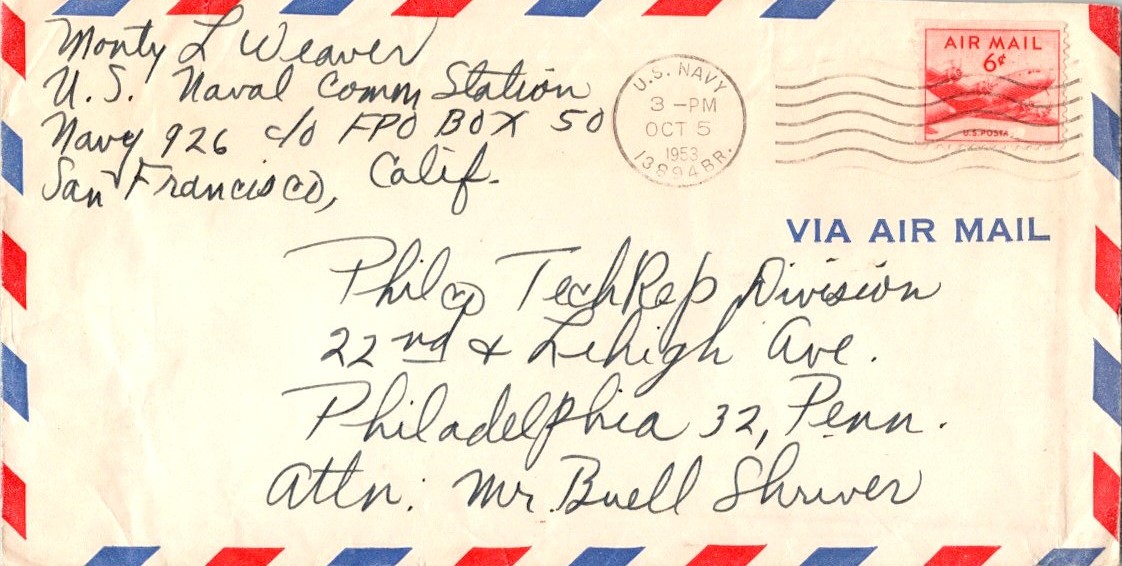 Monty L Weaver
U.S. Naval Comm Station
Navy 926 c/o FPO BOX 50
San Francisco, Calif.
U.S. NAVY
3 - PM
OCT 5
1953
13894 BR.
AIR MAIL
6¢
U.S. POSTA
VIA AIR MAIL
Philco TechRep Division
22nd & Lehigh Ave.
Philadelphia 32, Penn.
Attn: Mr. Buell Shriver